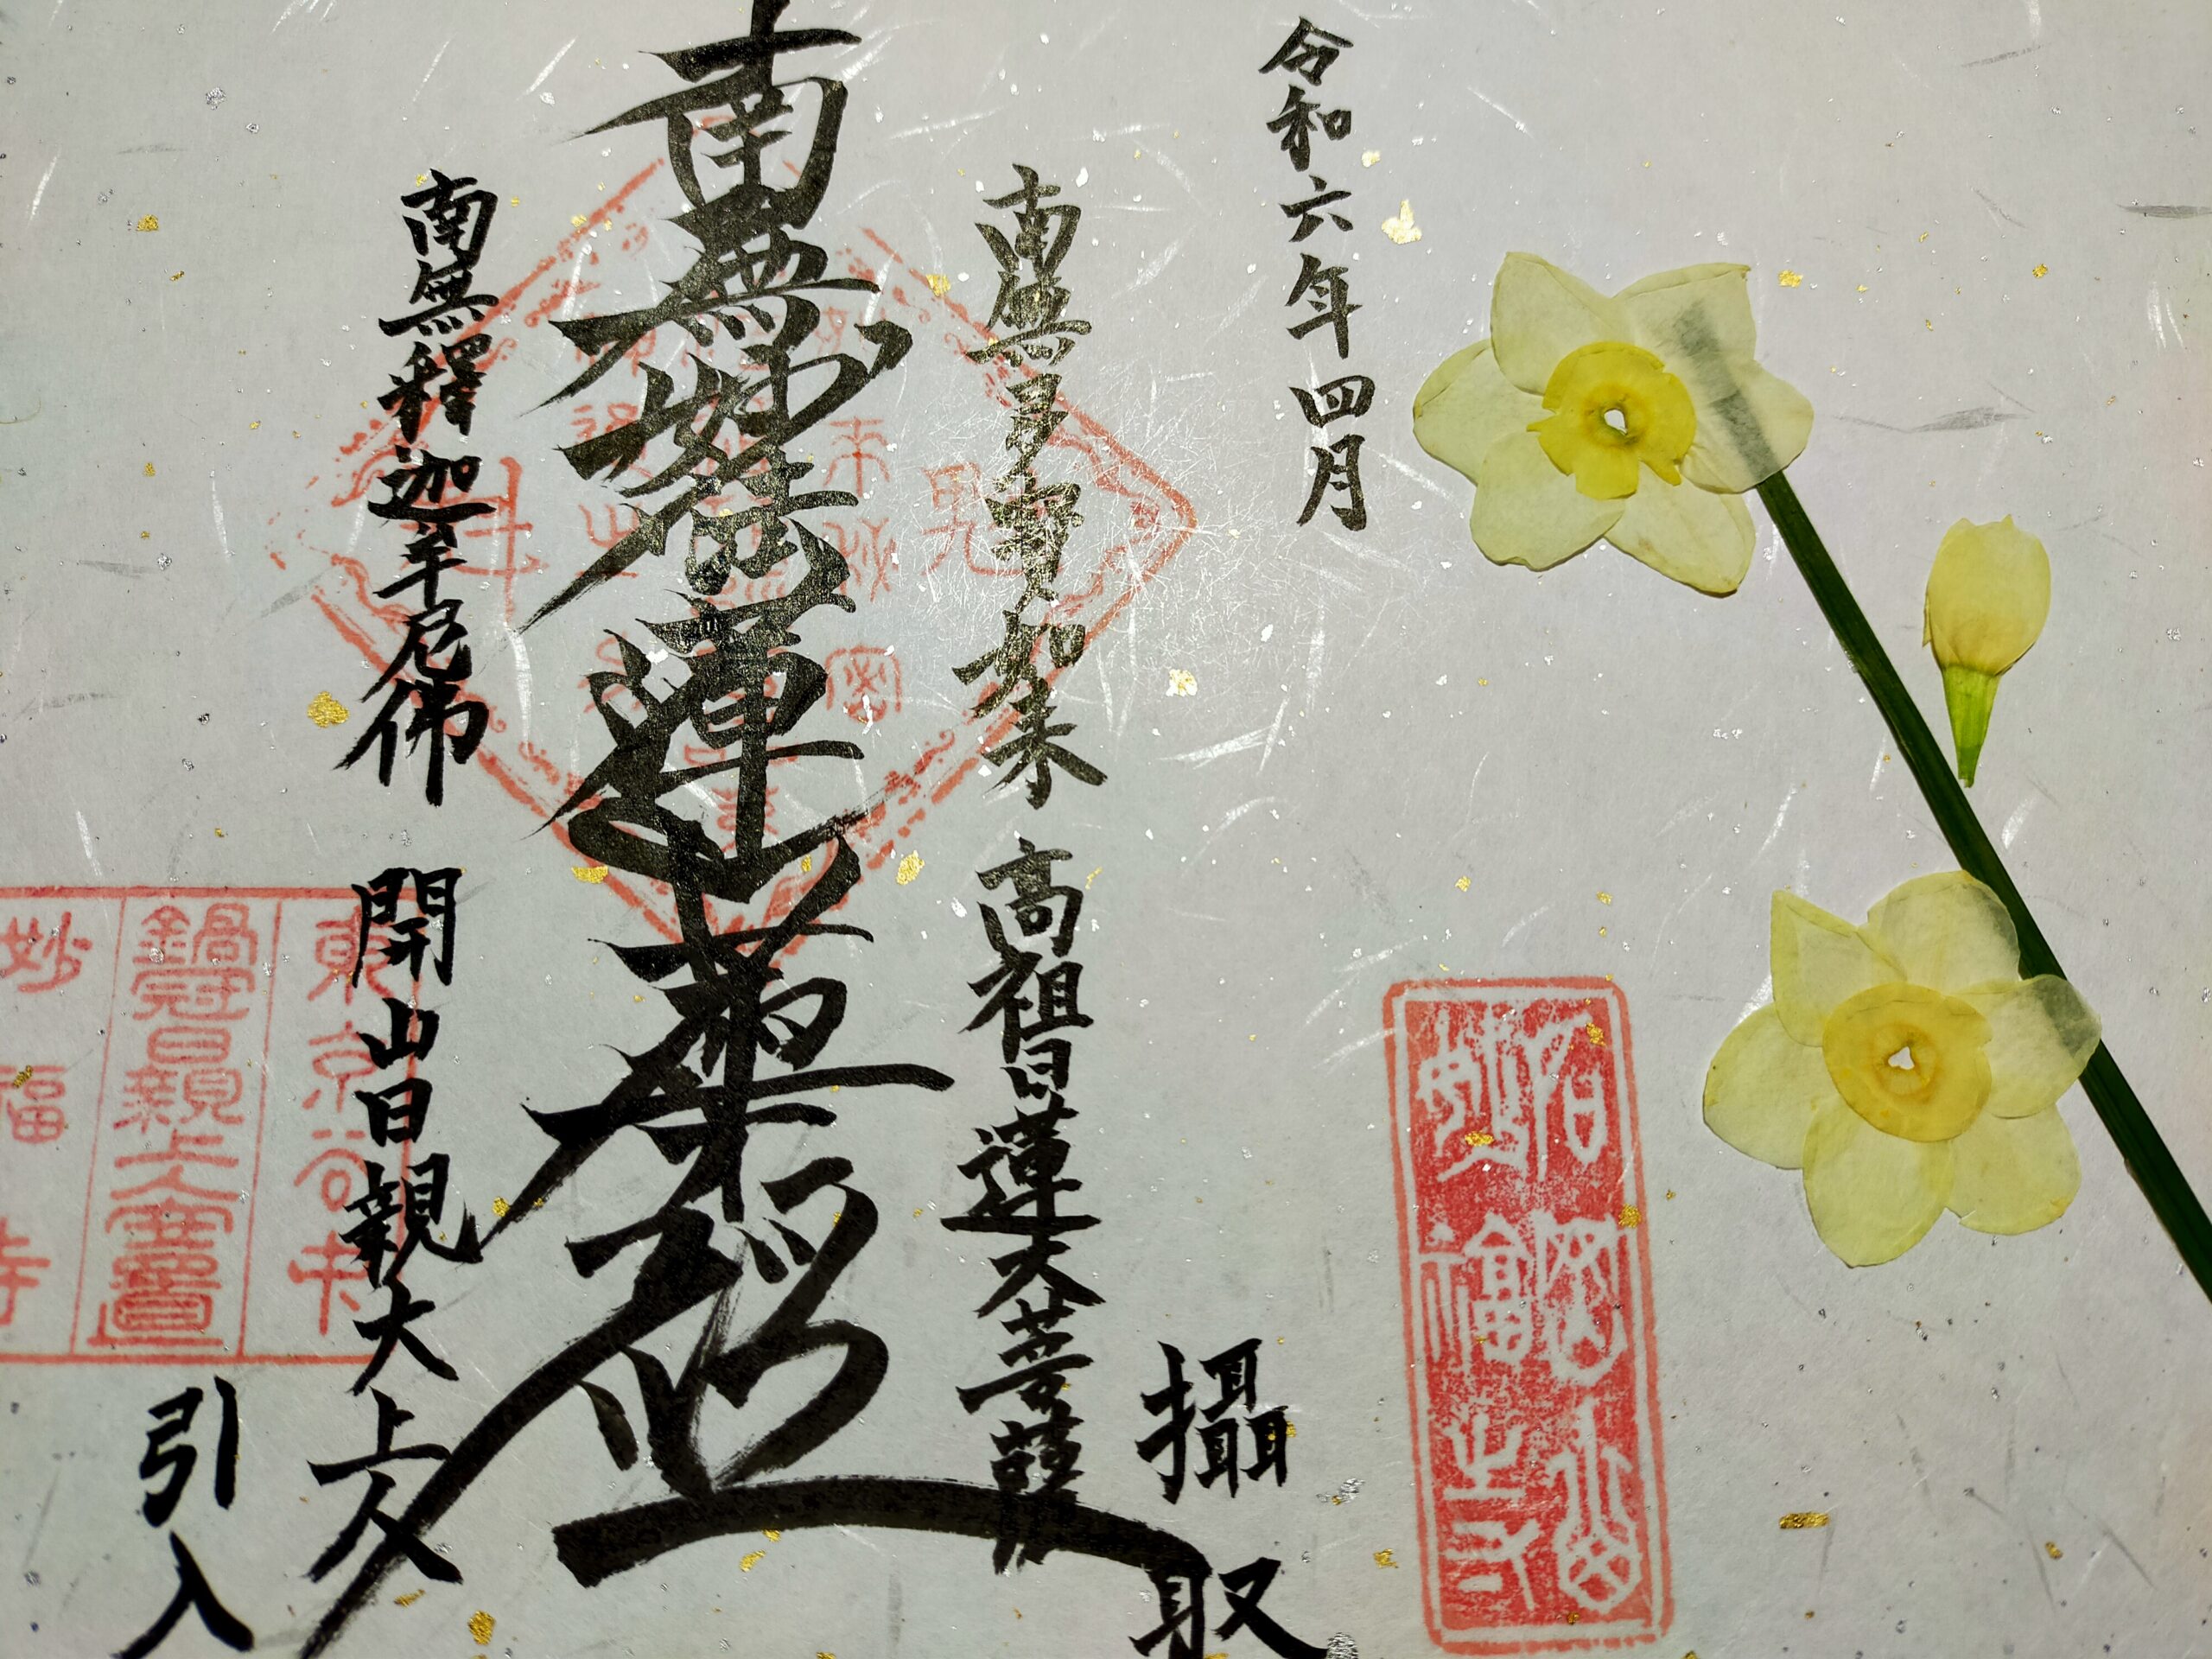 令和六年四月
南無多寶如来
高祖日蓮大菩薩
攝取
南無妙法蓮華経
南無釋迦牟尼佛
開山日親大上人
引入
東京谷中
鍋冠日親上人霊蹟
妙福寺